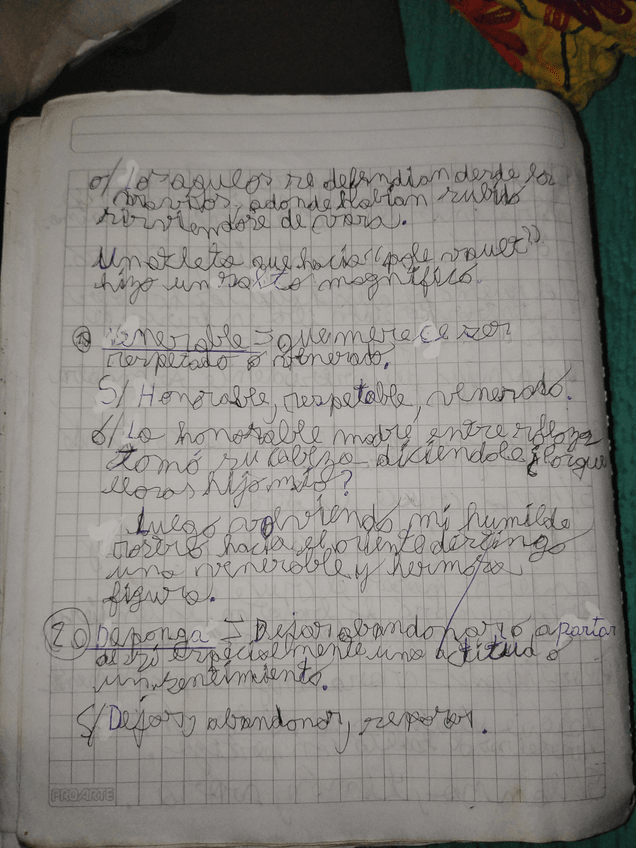 o/ Los aqueos se defendian desde los
navios, adonde habian subido
sirviendose de vara.
Un atleta que hacia "pole vault"
hizo un salto magnifico.
19 Venerable = que merece ser
respetado o venerado.
S/ Honorable, respetable, venerado.
o/ La honorable madre entre sollozos
tomó su cabeza diciéndole ¿Porque
lloras hijo mio?
Luego volviendo mi humilde
rostro hacia el oriente distingo
una venerable y hermosa
figura.
20 Deponga = Dejar, abandonar o apartar
de sí especialmente una actitud o
un sentimiento.
S/ Dejar, abandonar, separar.
PROARTE